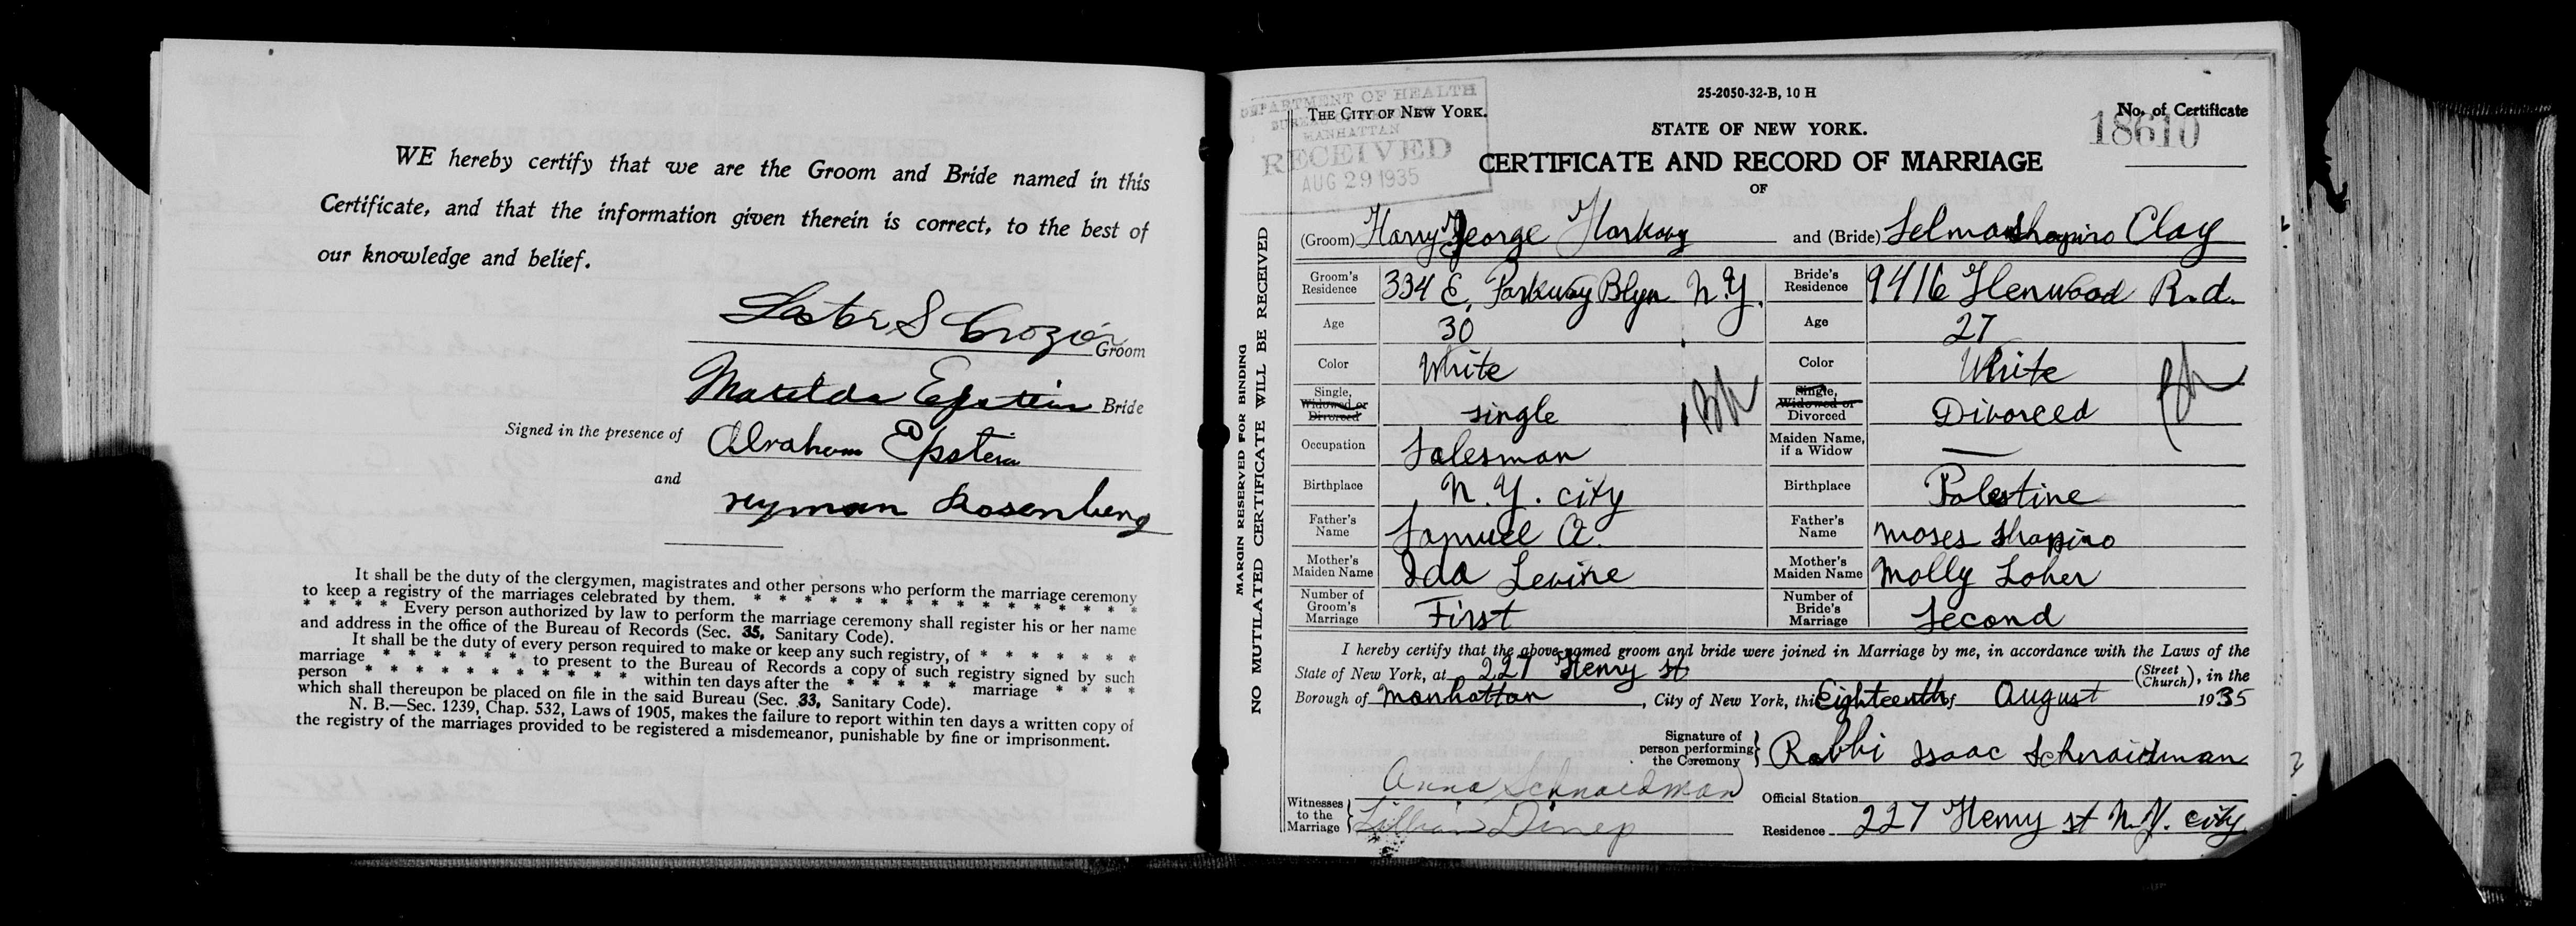 WE hereby certify that we are the Groom and Bride named in this
Certificate, and that the information given therein is correct, to the best of
our knowledge and belief.
Lester S Crozier Groom
Matilda Epstein Bride
Signed in the presence of Abraham Epstein
and
Hyman Rosenberg
It shall be the duty of the clergymen, magistrates and other persons who perform the marriage ceremony
to keep a registry of the marriages celebrated by them. * * * * * * * * * * * * * *
* * * * Every person authorized by law to perform the marriage ceremony shall register his or her name
and address in the office of the Bureau of Records (Sec. 35, Sanitary Code).
It shall be the duty of every person required to make or keep any such registry, of * * * * * * *
marriage * * * * * * * to present to the Bureau of Records a copy of such registry signed by such
person * * * * * * * * * * within ten days after the * * * * * marriage * * * *
which shall thereupon be placed on file in the said Bureau (Sec. 33, Sanitary Code).
N. B.—Sec. 1239, Chap. 532, Laws of 1905, makes the failure to report within ten days a written copy of
the registry of the marriages provided to be registered a misdemeanor, punishable by fine or imprisonment.
MARGIN RESERVED FOR BINDING
NO MUTILATED CERTIFICATE WILL BE RECEIVED
DEPARTMENT OF HEALTH
BUREAU OF RECORDS
MANHATTAN
RECEIVED
AUG 29 1935
25-2050-32-B, 10 H
THE CITY OF NEW YORK.
No. of Certificate
18610
STATE OF NEW YORK.
CERTIFICATE AND RECORD OF MARRIAGE
OF
(Groom) Harry George Harkavy and (Bride) Selma Shapiro Clay
Groom's Residence 334 E. Parkway Blyn N.Y. Bride's Residence 9416 Glenwood Rd.
Age 30 Age 27
Color White Color White
Single, Widowed or Divorced single Single, Widowed or Divorced Divorced
Occupation Salesman Maiden Name, if a Widow —
Birthplace N.Y. city Birthplace Palestine
Father's Name Samuel A. Father's Name Moses Shapiro
Mother's Maiden Name Ida Levine Mother's Maiden Name Molly Loher
Number of Groom's Marriage First Number of Bride's Marriage Second
I hereby certify that the above-named groom and bride were joined in Marriage by me, in accordance with the Laws of the
State of New York, at 227 Henry st (Street Church), in the
Borough of Manhattan, City of New York, this Eighteenth of August 1935
Signature of person performing the Ceremony Rabbi Isaac Schnaidman
Anna Schnaidman
Witnesses to the Marriage Lillian
Official Station
Residence 227 Henry st N.Y. city